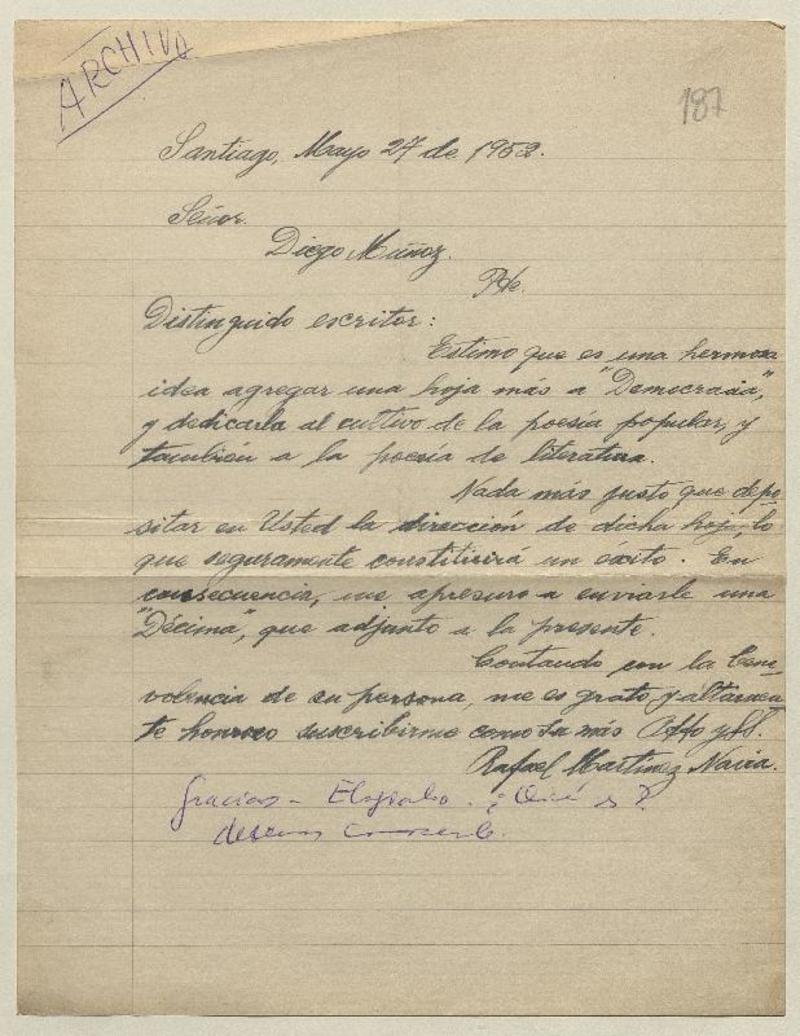 ARCHIVO
187
Santiago, Mayo 27 de 1952.
Señor.
Diego Muñoz.
Pte.
Distinguido escritor:
Estimo que es una hermosa
idea agregar una hoja más a "Democracia",
y dedicarla al cultivo de la poesía popular, y
también a la poesía de literatura.
Nada más justo que depo-
sitar en Usted la dirección de dicha hoja, lo
que seguramente constituirá un éxito. En
consecuencia, me apresuro a enviarle una
"Décima", que adjunto a la presente.
Contando con la bene-
volencia de su persona, me es grato y altamen-
te honroso suscribirme como su más Atto y SS.
Rafael Martinez Navia.
Gracias - ¿Quién es?
deseamos conocerlo.